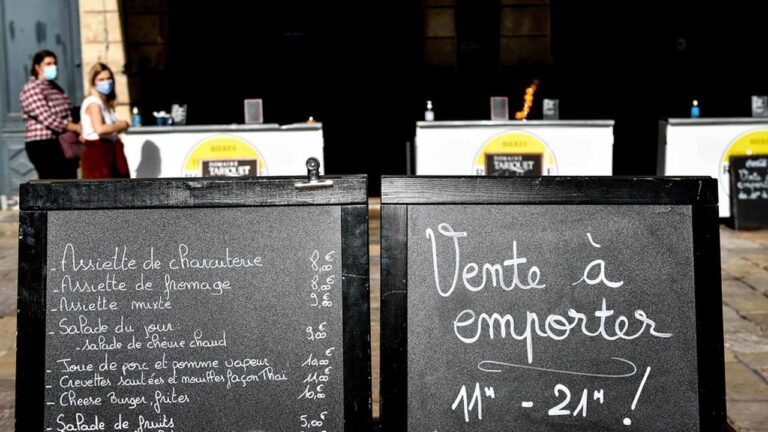 BIÈRES
DOMAINE
TARIQUET
BIÈRES
DOMAINE
TARIQUET
Vente
- Assiette de charcuterie 8,€
- Assiette de fromage 8,€
- Assiette mixte 9,€
- Salade du jour
- salade de chèvre chaud 9,00€
- Joue de porc et pomme vapeur 10,00€
- Crevettes sautées et nouilles façon Thaï 11,00€
- Cheese Burger, frites 10,50€
- Salade de fruits 5,00€
Vente à
emporter
11H - 21H !